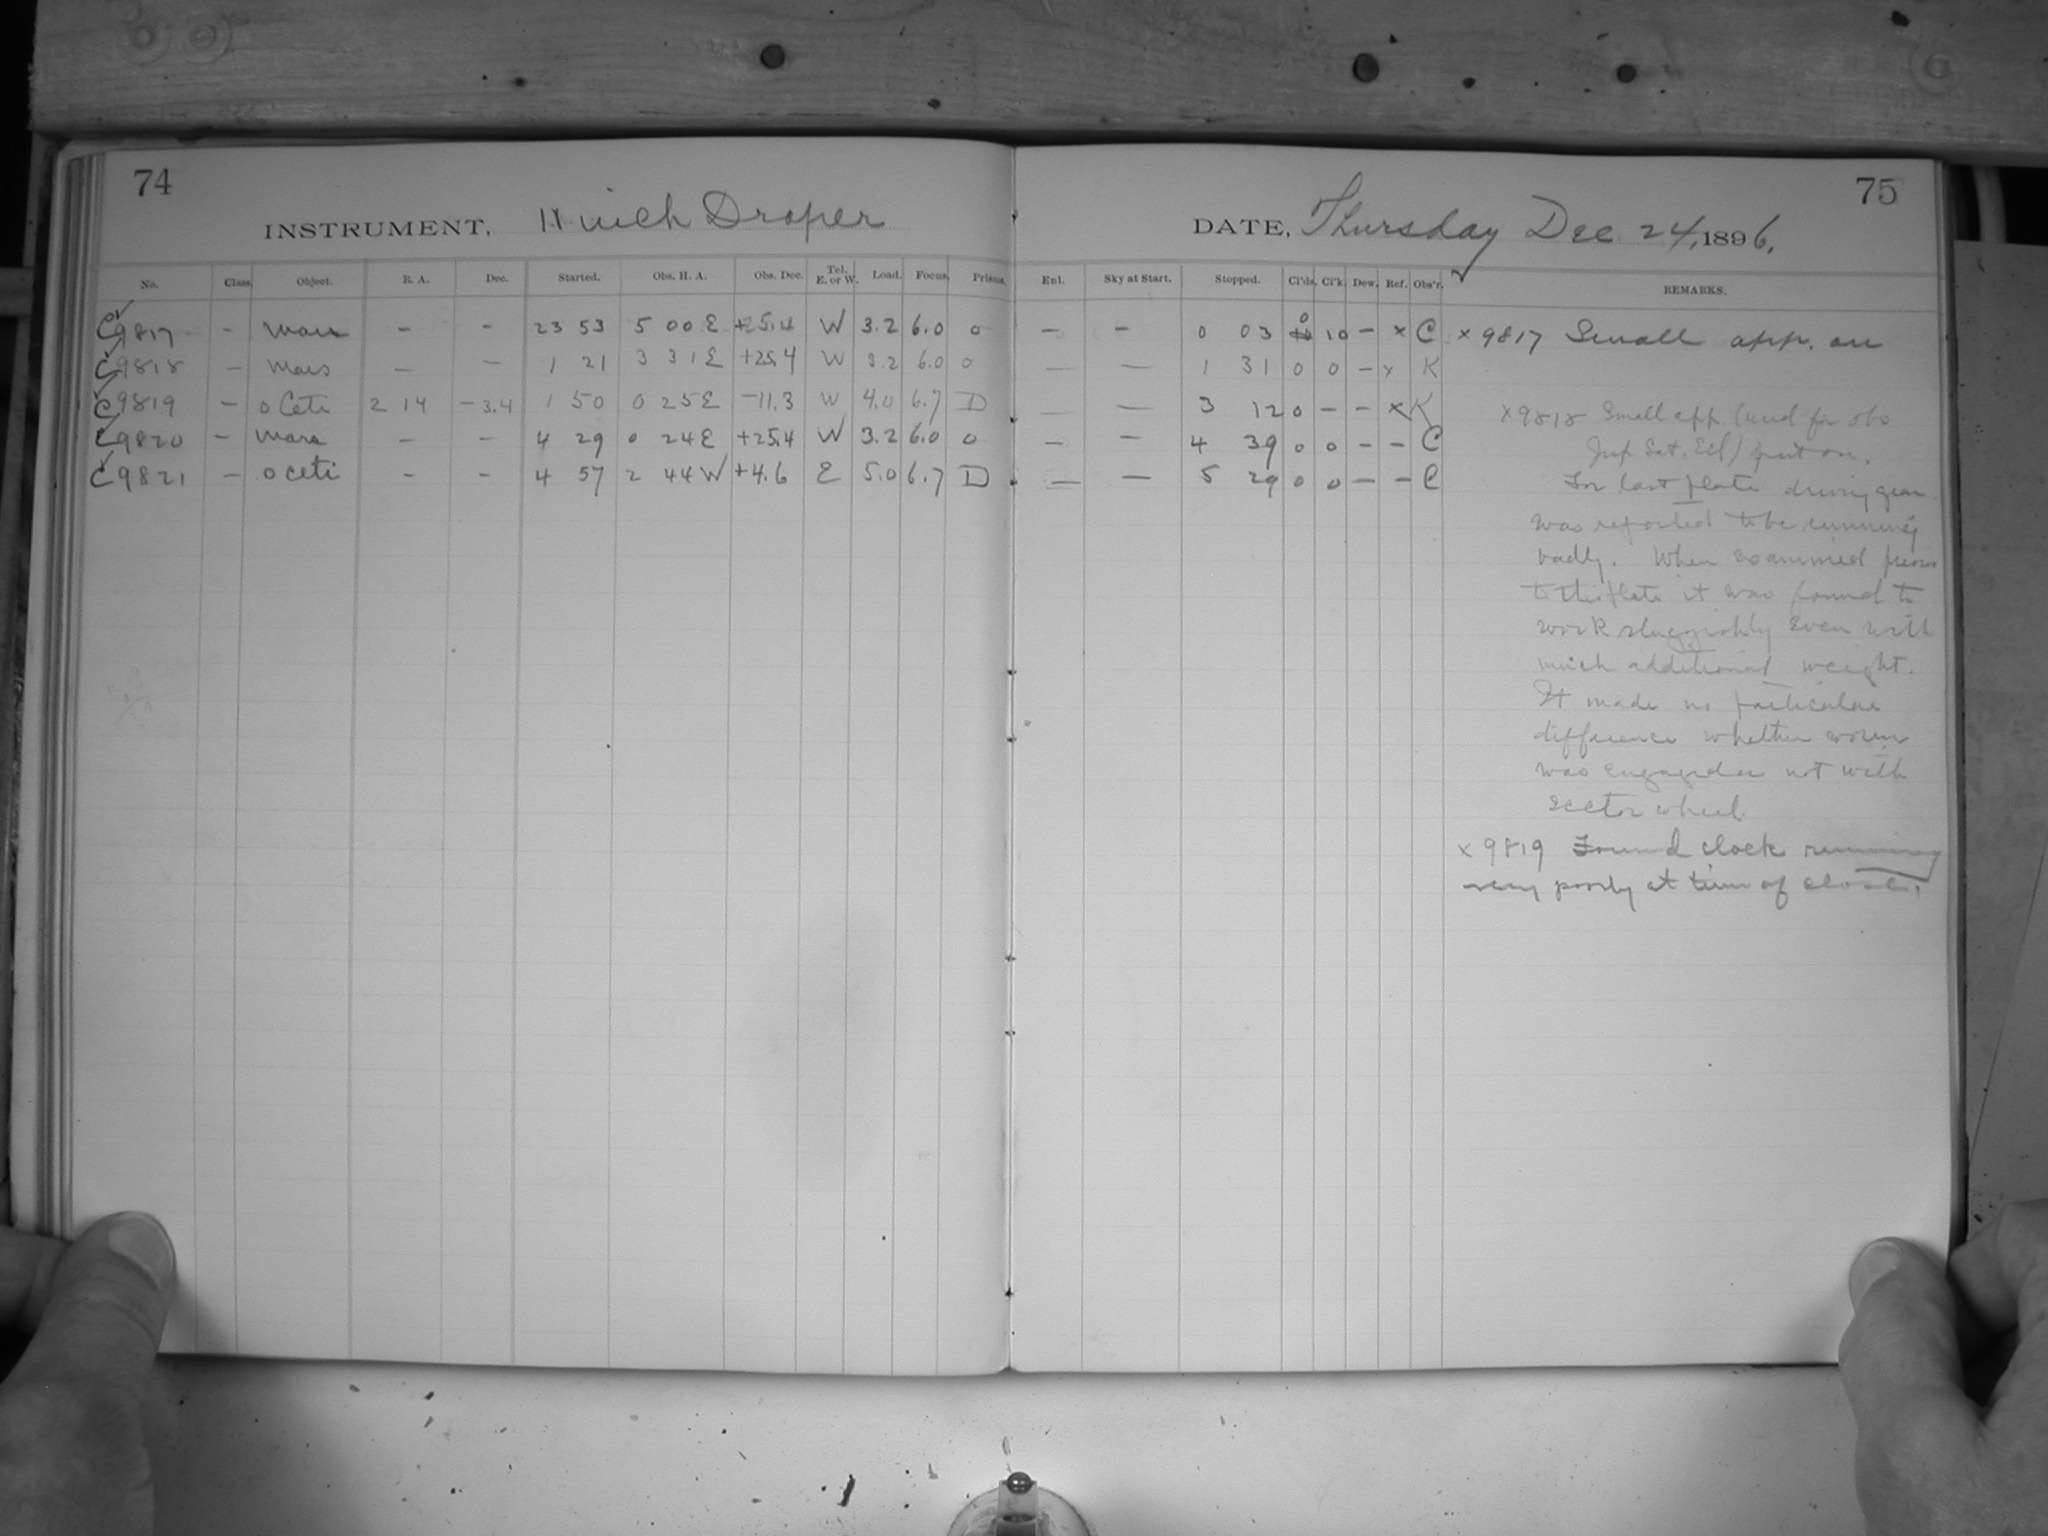 74
INSTRUMENT, 11 inch Draper
No. Class. Object. R. A. Dec. Started. Obs. H. A. Obs. Dec. Tel. E. or W. Load. Focus. Prisms.
C9817 - Mars - - 23 53 5 00 E +25.4 W 3.2 6.0 0
C9818 - Mars - - 1 21 3 31 E +25.4 W 3.2 6.0 0
C9819 - o Ceti 2 14 -3.4 1 50 0 25 E -11.3 W 4.0 6.7 D
C9820 - Mars - - 4 29 0 24 E +25.4 W 3.2 6.0 0
C9821 - o Ceti - - 4 57 2 44 W +4.6 E 5.0 6.7 D
75
DATE, Thursday Dec. 24, 1896.
Enl. Sky at Start. Stopped. Cl'ds. Cl'k. Dew. Ref. Obs'r. REMARKS.
- - 0 03 0 10 - x C x 9817 Small app. on
- - 1 31 0 0 - x K
- - 3 12 0 - - x K x 9818 Small app (used for obs
- - 4 39 0 0 - - C Jup. Sat. Ecl) put on.
- - 5 29 0 0 - - C For last plate driving gear
was reported to be running
badly. When examined previous
to this plate it was found to
work sluggishly even with
much additional weight.
It made no particular
difference whether worm
was engaged or not with
sector wheel.
x 9819 Found clock running
very poorly at time of close.